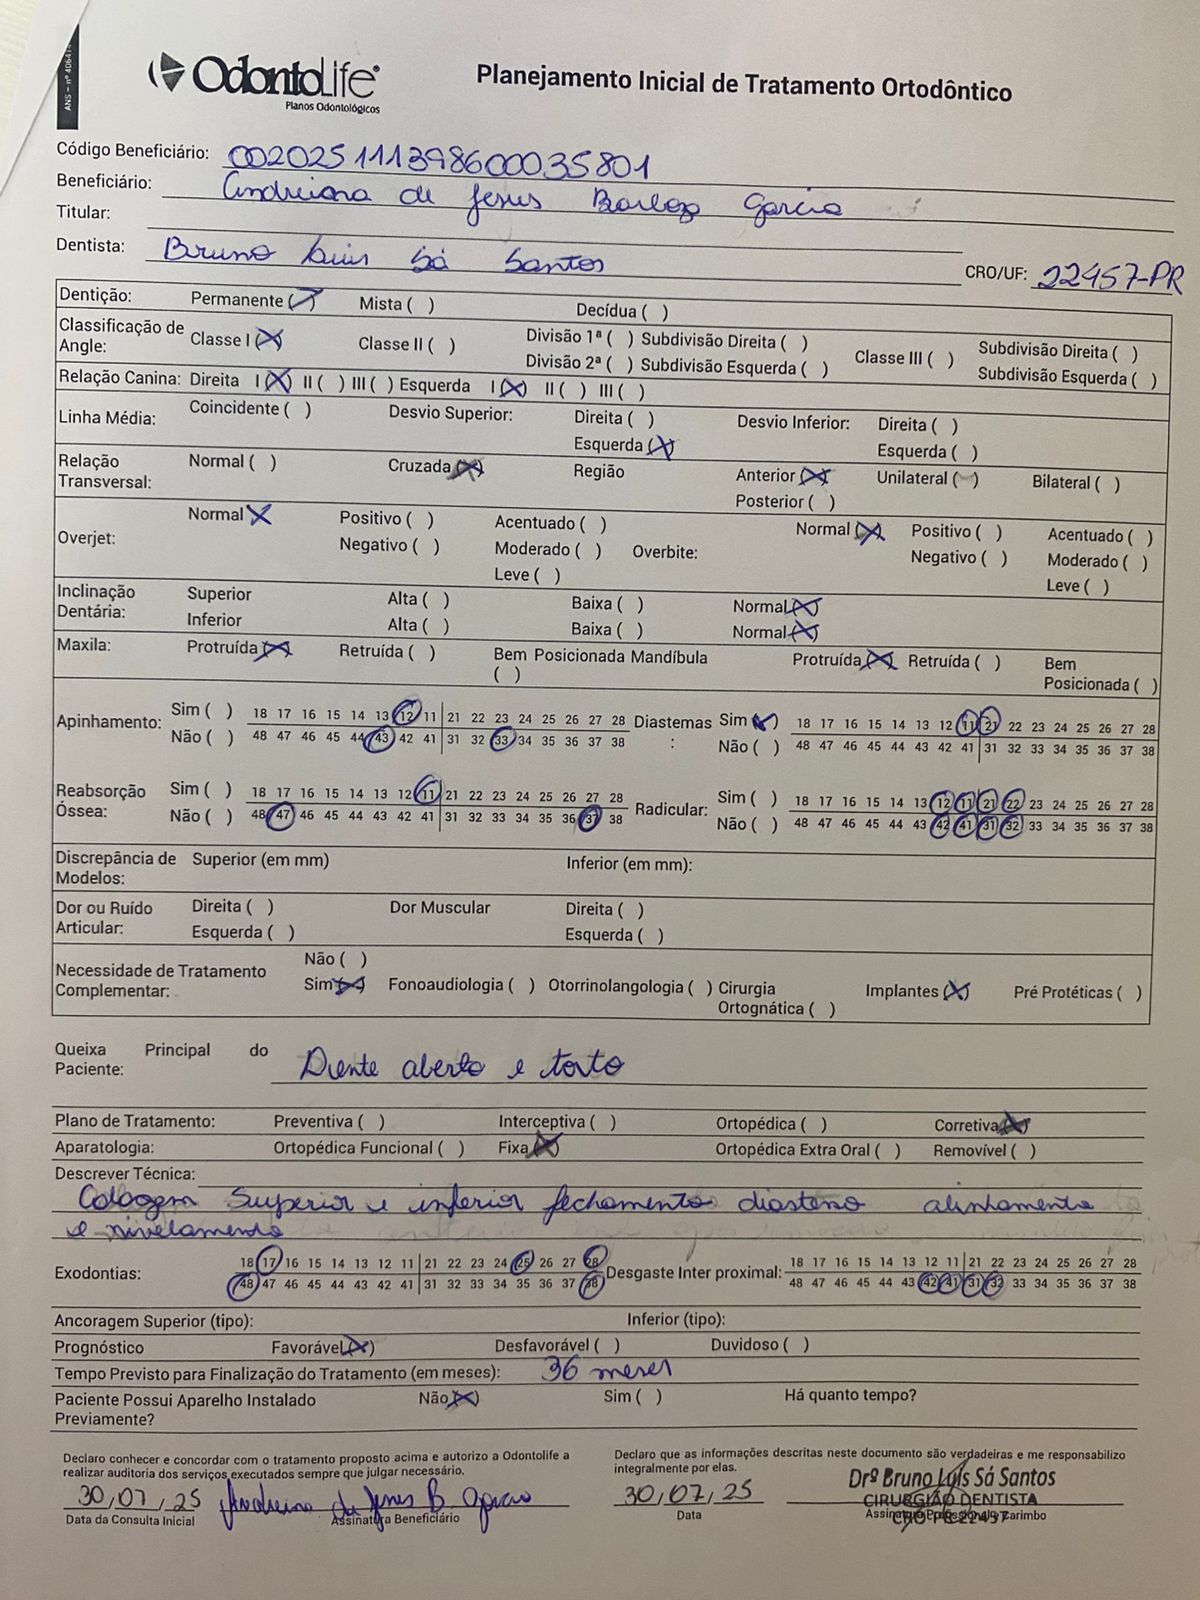 ANS – nº 40641
OdontoLife®
Planos Odontológicos
Planejamento Inicial de Tratamento Ortodôntico
Código Beneficiário: 002025111398600035801
Beneficiário: Andreiana de Jesus Barboza Garcia
Titular:
Dentista: Bruno Luis Sá Santos CRO/UF: 22457-PR
Dentição: Permanente (/) Mista ( ) Decídua ( )
Classificação de Angle: Classe I (X) Classe II ( ) Divisão 1ª ( ) Subdivisão Direita ( ) Divisão 2ª ( ) Subdivisão Esquerda ( ) Classe III ( ) Subdivisão Direita ( ) Subdivisão Esquerda ( )
Relação Canina: Direita I (X) II ( ) III ( ) Esquerda I (X) II ( ) III ( )
Linha Média: Coincidente ( ) Desvio Superior: Direita ( ) Esquerda (X) Desvio Inferior: Direita ( ) Esquerda ( )
Relação Transversal: Normal ( ) Cruzada (X) Região Anterior (X) Posterior ( ) Unilateral ( ) Bilateral ( )
Overjet: Normal X Positivo ( ) Negativo ( ) Acentuado ( ) Moderado ( ) Leve ( ) Overbite: Normal (X) Positivo ( ) Negativo ( ) Acentuado ( ) Moderado ( ) Leve ( )
Inclinação Dentária: Superior Alta ( ) Baixa ( ) Normal (X)
Inferior Alta ( ) Baixa ( ) Normal (X)
Maxila: Protruída (X) Retruída ( ) Bem Posicionada ( ) Mandíbula Protruída (X) Retruída ( ) Bem Posicionada ( )
Apinhamento: Sim ( ) 18 17 16 15 14 13 12 11 21 22 23 24 25 26 27 28 Diastemas : Sim (X) 18 17 16 15 14 13 12 11 21 22 23 24 25 26 27 28
Não ( ) 48 47 46 45 44 43 42 41 31 32 33 34 35 36 37 38 Não ( ) 48 47 46 45 44 43 42 41 31 32 33 34 35 36 37 38
Reabsorção Óssea: Sim ( ) 18 17 16 15 14 13 12 11 21 22 23 24 25 26 27 28 Radicular: Sim ( ) 18 17 16 15 14 13 12 11 21 22 23 24 25 26 27 28
Não ( ) 48 47 46 45 44 43 42 41 31 32 33 34 35 36 37 38 Não ( ) 48 47 46 45 44 43 42 41 31 32 33 34 35 36 37 38
Discrepância de Modelos: Superior (em mm) Inferior (em mm):
Dor ou Ruído Articular: Direita ( ) Esquerda ( ) Dor Muscular Direita ( ) Esquerda ( )
Necessidade de Tratamento Complementar: Não ( ) Sim (X) Fonoaudiologia ( ) Otorrinolangologia ( ) Cirurgia Ortognática ( ) Implantes (X) Pré Protéticas ( )
Queixa Principal do Paciente: Dente aberto e torto
Plano de Tratamento: Preventiva ( ) Interceptiva ( ) Ortopédica ( ) Corretiva (X)
Aparatologia: Ortopédica Funcional ( ) Fixa (X) Ortopédica Extra Oral ( ) Removível ( )
Descrever Técnica:
Colagem Superior e inferior fechamento diastema alinhamento
e nivelamento
Exodontias: 18 17 16 15 14 13 12 11 21 22 23 24 25 26 27 28 Desgaste Inter proximal: 18 17 16 15 14 13 12 11 21 22 23 24 25 26 27 28
48 47 46 45 44 43 42 41 31 32 33 34 35 36 37 38 48 47 46 45 44 43 42 41 31 32 33 34 35 36 37 38
Ancoragem Superior (tipo): Inferior (tipo):
Prognóstico Favorável (X) Desfavorável ( ) Duvidoso ( )
Tempo Previsto para Finalização do Tratamento (em meses): 36 meses
Paciente Possui Aparelho Instalado Previamente? Não (X) Sim ( ) Há quanto tempo?
Declaro conhecer e concordar com o tratamento proposto acima e autorizo a Odontolife a
realizar auditoria dos serviços executados sempre que julgar necessário.
30/07/25 Andreiana de Jesus B. Garcia
Data da Consulta Inicial Assinatura Beneficiário
Declaro que as informações descritas neste documento são verdadeiras e me responsabilizo
integralmente por elas.
30/07/25
Data
Drº Bruno Luis Sá Santos
CIRURGIÃO DENTISTA
CRO-PR 22457
Assinatura Profissional e Carimbo